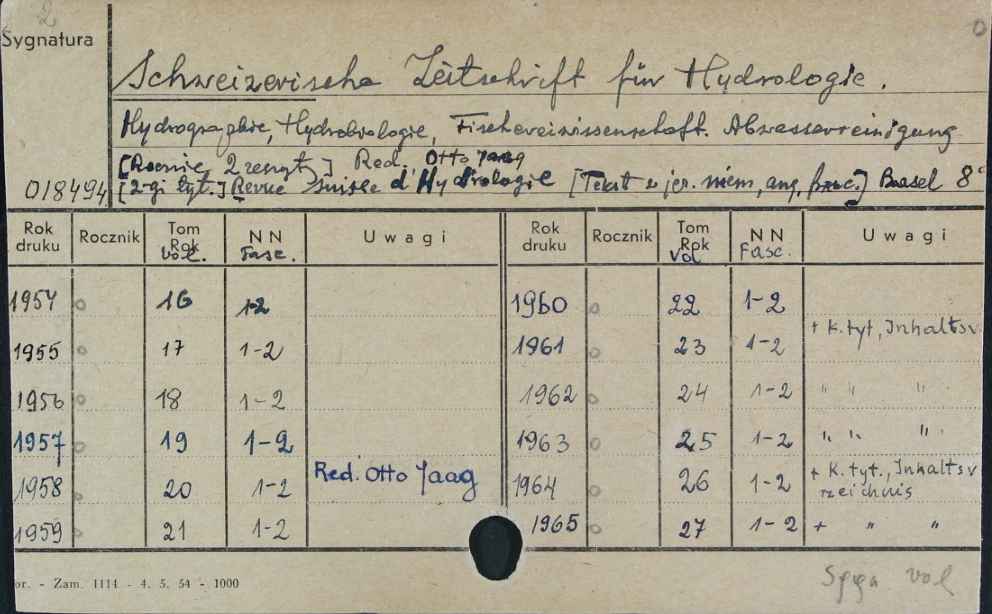 2
Sygnatura
Schweizerische Zeitschrift für Hydrologie.
Hydrographie, Hydrobiologie, Fischereiwissenschaft. Abwasserreinigung
[Rocznie, 2 zeszyt.] Red. Otto Jaag
018494 [2-gi tyt.] Revue suisse d'Hydrologie [Tekst w jęz. niem, ang, franc.] Basel 8°
Rok druku Rocznik Tom Rok Vol. NN Fasc. Uwagi Rok druku Rocznik Tom Rok Vol NN Fasc. Uwagi
1954 o 16 1-2 1960 o 22 1-2
1955 o 17 1-2 1961 o 23 1-2 + K. tyt, Inhaltsv.
1956 o 18 1-2 1962 o 24 1-2 " " "
1957 o 19 1-2 1963 o 25 1-2 " " "
1958 o 20 1-2 Red. Otto Jaag 1964 o 26 1-2 + K. tyt., Inhaltsverzeichnis
1959 o 21 1-2 1965 27 1-2 + " "
or. - Zam. 1114 - 4. 5. 54 - 1000
vol